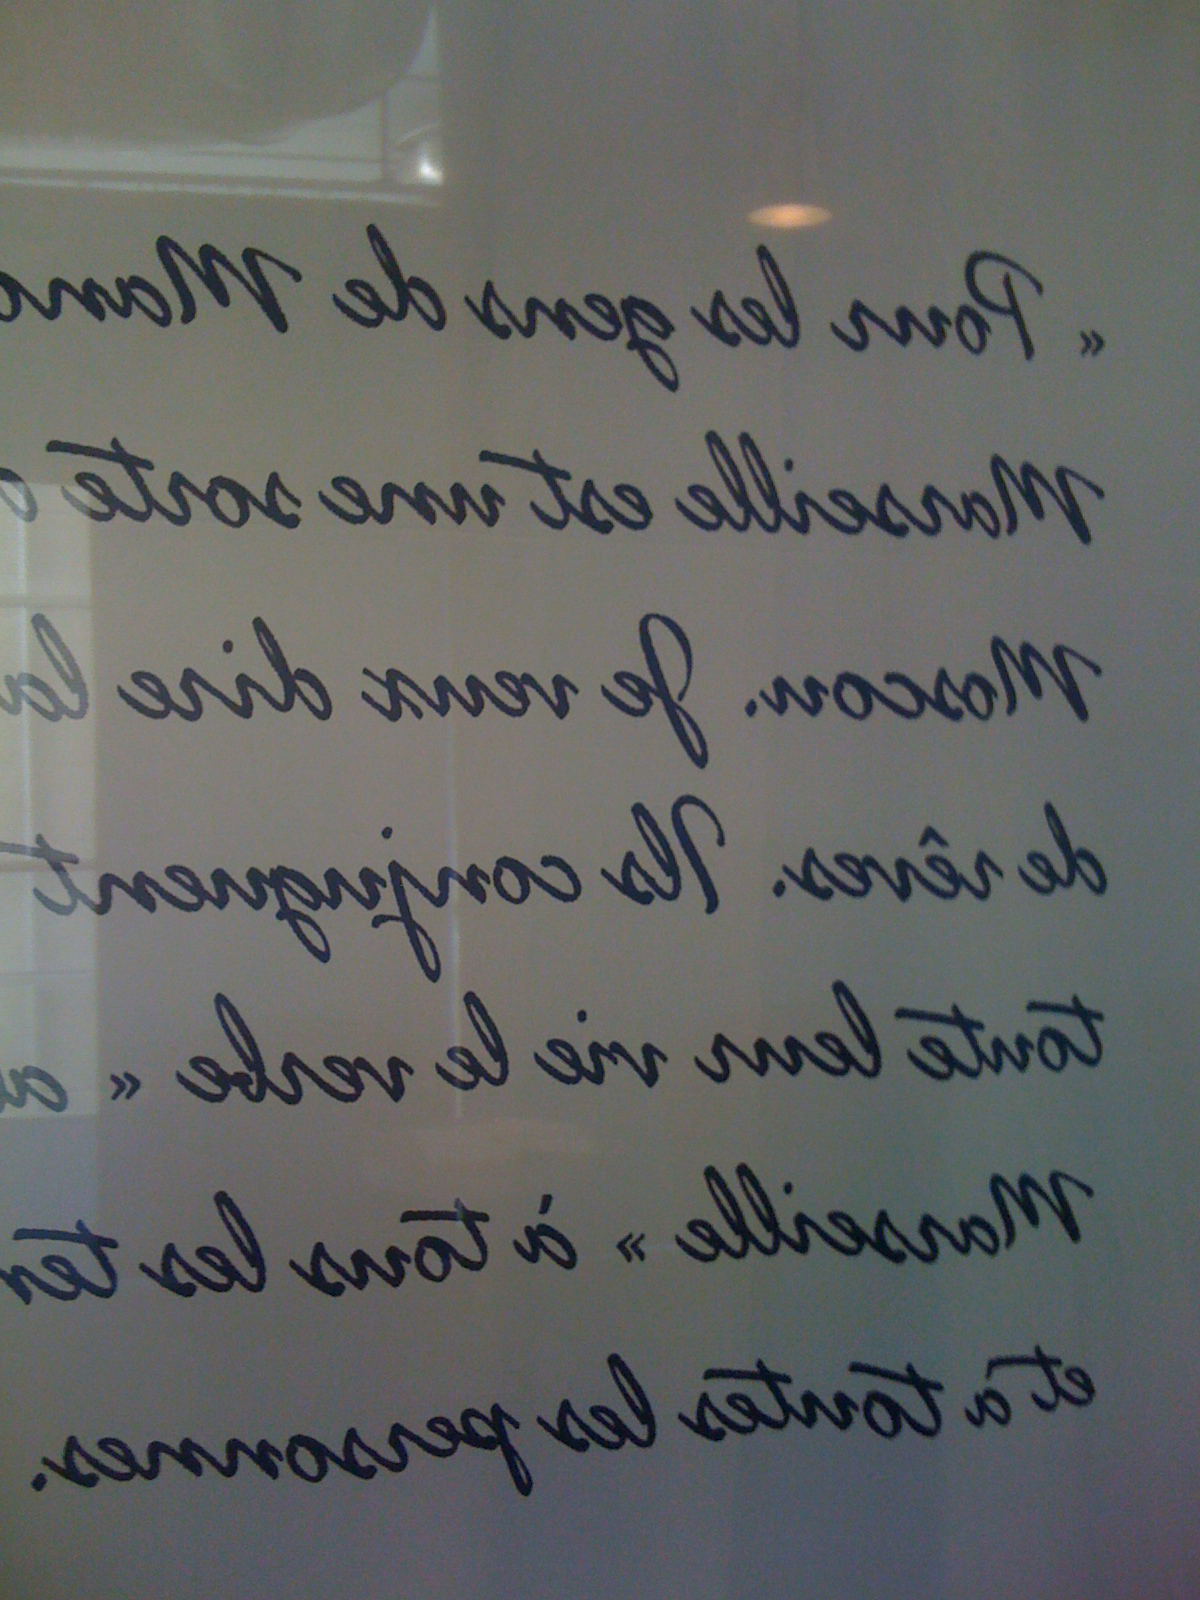 « Pour les gens de
Marseille est une sorte
Moscou. Je veux dire la
de rêves. Ils conjuguent
toute leur vie le verbe «
Marseille » à tous les
et à toutes les personnes.